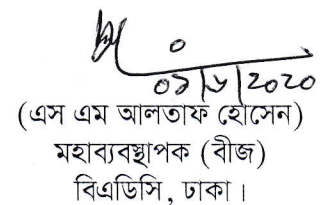 ০১/৬/2020
(এস এম আলতাফ হোসেন)
মহাব্যবস্থাপক (বীজ)
বিএডিসি, ঢাকা।